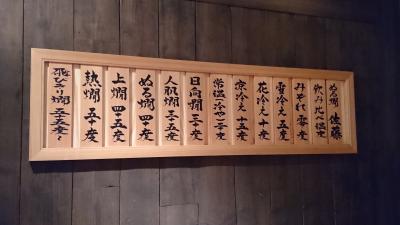 ぬる燗 佐藤
飲み比べ温度
みぞれ 零度
雪冷え 五度
花冷え 十度
涼冷え 十五度
常温(冷や) 二十度
日向燗 三十度
人肌燗 三十五度
ぬる燗 四十度
上燗 四十五度
熱燗 五十度
飛びきり燗 五十五度〜